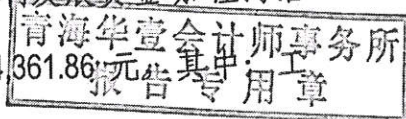 青海华壹会计师事务所
361.86元。其中：工
报告专用章